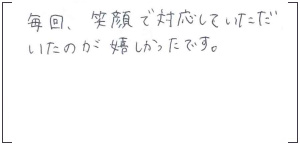 毎回、笑顔で対応していただ
いたのが嬉しかったです。